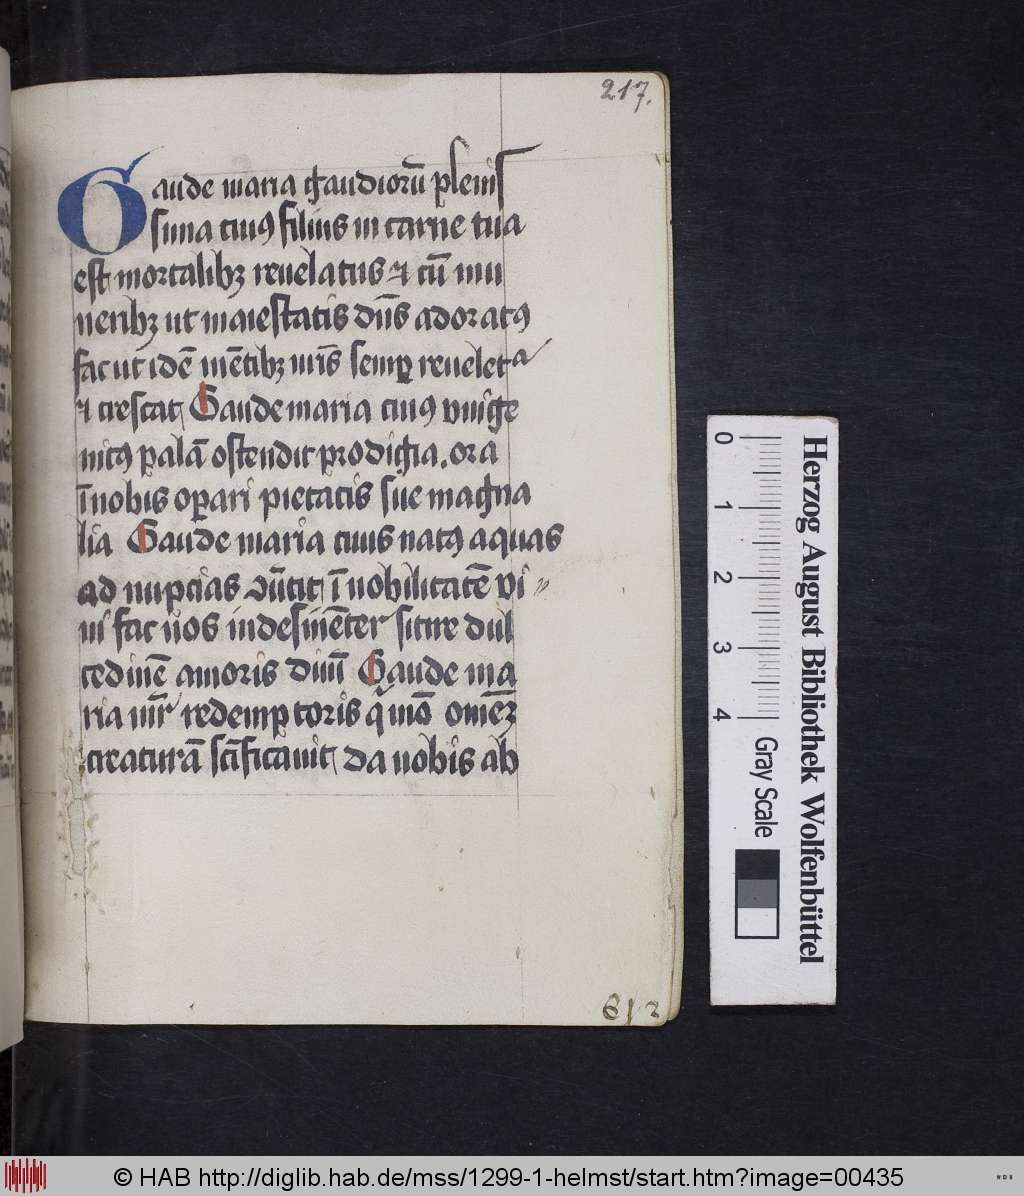 217.
Gaude maria gaudiorū plenis
sima cuiꝰ filius in carne tua
est mortalibꝫ reuelatus ⁊ cū mu
neribꝫ ut maiestatis dn̄s adoratꝰ
fac ut idē mētibꝫ nr̄is semꝑ reueletᵃ
⁊ crescat Gaude maria cuiꝰ vnige
nitꝰ palā ostendit prodigia. ora
ī nobis oꝑari pietatis sue magna
lia Gaude maria cuius natꝰ aquas
ad nupcias ī nobilitatē vi〃
ni fac nos indesinēter sitire dul
cedinē amoris diuī Gaude ma
ria mr̄ redemptoris omēꝫ
creaturā scīficauit da nobis ab
612
0 1 2 3 4
Gray Scale
Herzog August Bibliothek Wolfenbüttel
© HAB http://diglib.hab.de/mss/1299-1-helmst/start.htm?image=00435